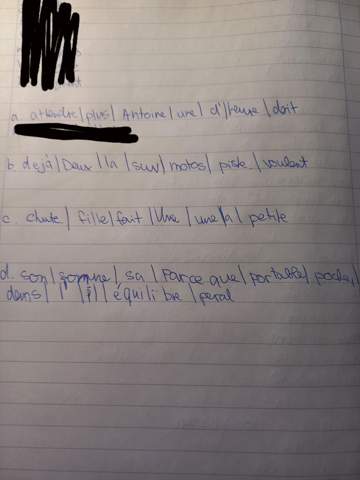 a. attendre | plus | Antoine | une | d' | heure | doit
b. dejà | Deux | la | sur | motos | piste | roulent
c. chute | fille | fait | Une | une | a | petite
d. son | sonne | sa | Parce que | portable | poche
dans | il | équilibre | perd